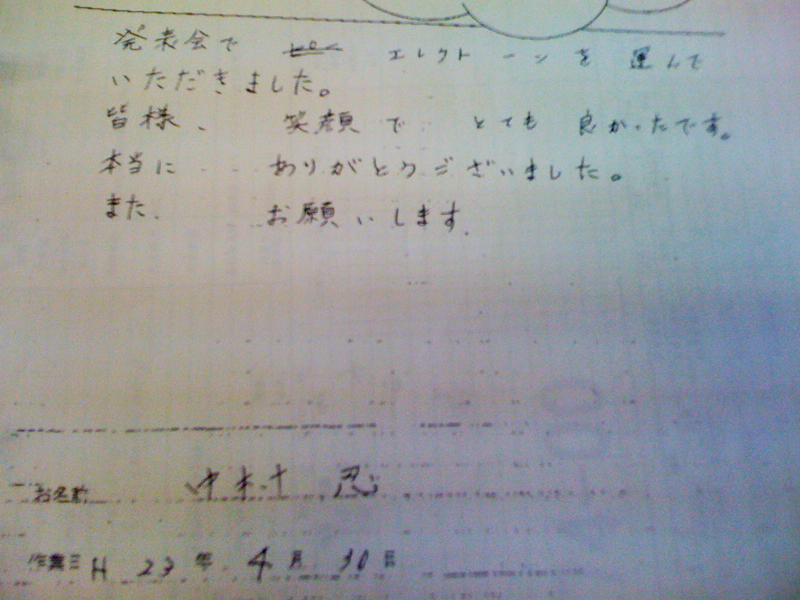 発表会で エレクトーンを運んで
いただきました。
皆様、笑顔で とても 良かったです。
本当に ありがとうございました。
また、お願いします。
お名前 中村 忍
作業日 H 23 年 4 月 30 日